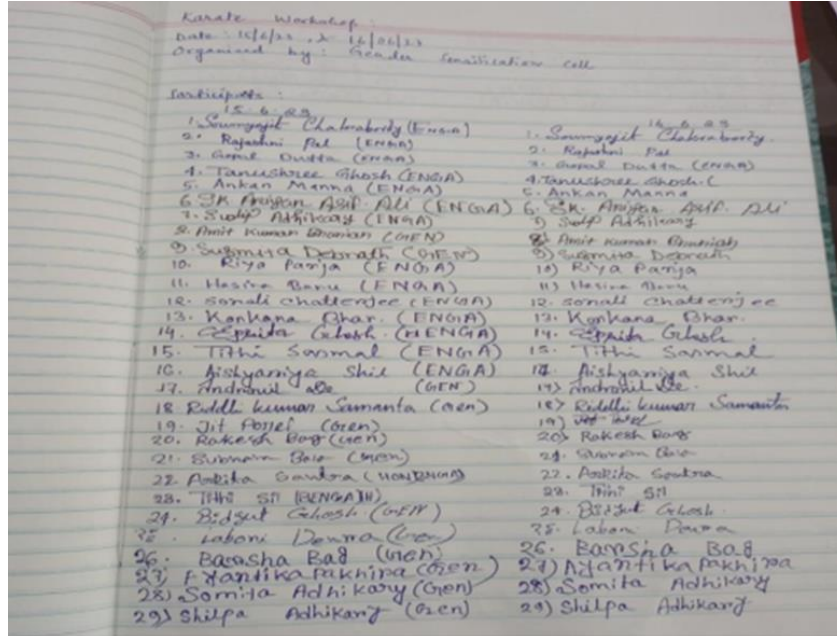 Karate Workshop :
Date : 15/6/23 & 16/06/23
Organised by : Gender Sensitisation Cell
Participants :
15.6.23
1. Soumyajit Chakraborty (ENGA)
2. Rajashni Pal (ENGA)
3. Gopal Dutta (ENGA)
4. Tanushree Ghosh (ENGA)
5. Ankan Manna (ENGA)
6. SK Aniyan Asif Ali (ENGA)
7. Sudip Adhikary (ENGA)
8. Amit Kumar (GEN)
9) Susmita Debnath (GEN)
10. Riya Parija (ENGA)
11. Hasina Banu (ENGA)
12. Sonali Chatterjee (ENGA)
13. Konkana Bhar. (ENGA)
14. Ghosh (HENGA)
15. Tithi Sasmal (ENGA)
16. Aishyarniya Shil (ENGA)
17. Andronil De (GEN)
18. Riddhi kumar Samanta (Gen)
19. Jit (Gen)
20. Rakesh Bag (Gen)
21. Subham Bose (Gen)
22. Ankita Santra
23. Tithi Sil (BENGAIH)
24. Bidyut Ghosh (GEN)
25. Laboni Dewra (Gen)
26. Barsha Bag (Gen)
27) Ayantika Pakhira (Gen)
28) Somita Adhikary (Gen)
29) Shilpa Adhikary (Gen)
16.6.23
1. Soumyajit Chakraborty.
2. Rajashni Pal
3. Gopal Dutta (ENGA)
4. Tanushree Ghosh. (
5. Ankan Manna
6. SK. Aniyan Asif. Ali
7) Sudip Adhikary
8) Amit Kumar
9) Susmita Debnath
10) Riya Parija
11) Hasina Banu
12. Sonali Chatterjee
13. Konkana Bhar.
14. Ghosh
15. Tithi Sasmal
16. Aishyarniya Shil
17) Andronil De.
18) Riddhi kumar Samanta
19) Jit
20) Rakesh Bag
21. Subham Bose
22. Ankita Santra
23. Tithi Sil
24. Bidyut Ghosh
25. Laboni Dewra
26. Barsha Bag
27) Ayantika Pakhira
28) Somita Adhikary
29) Shilpa Adhikary